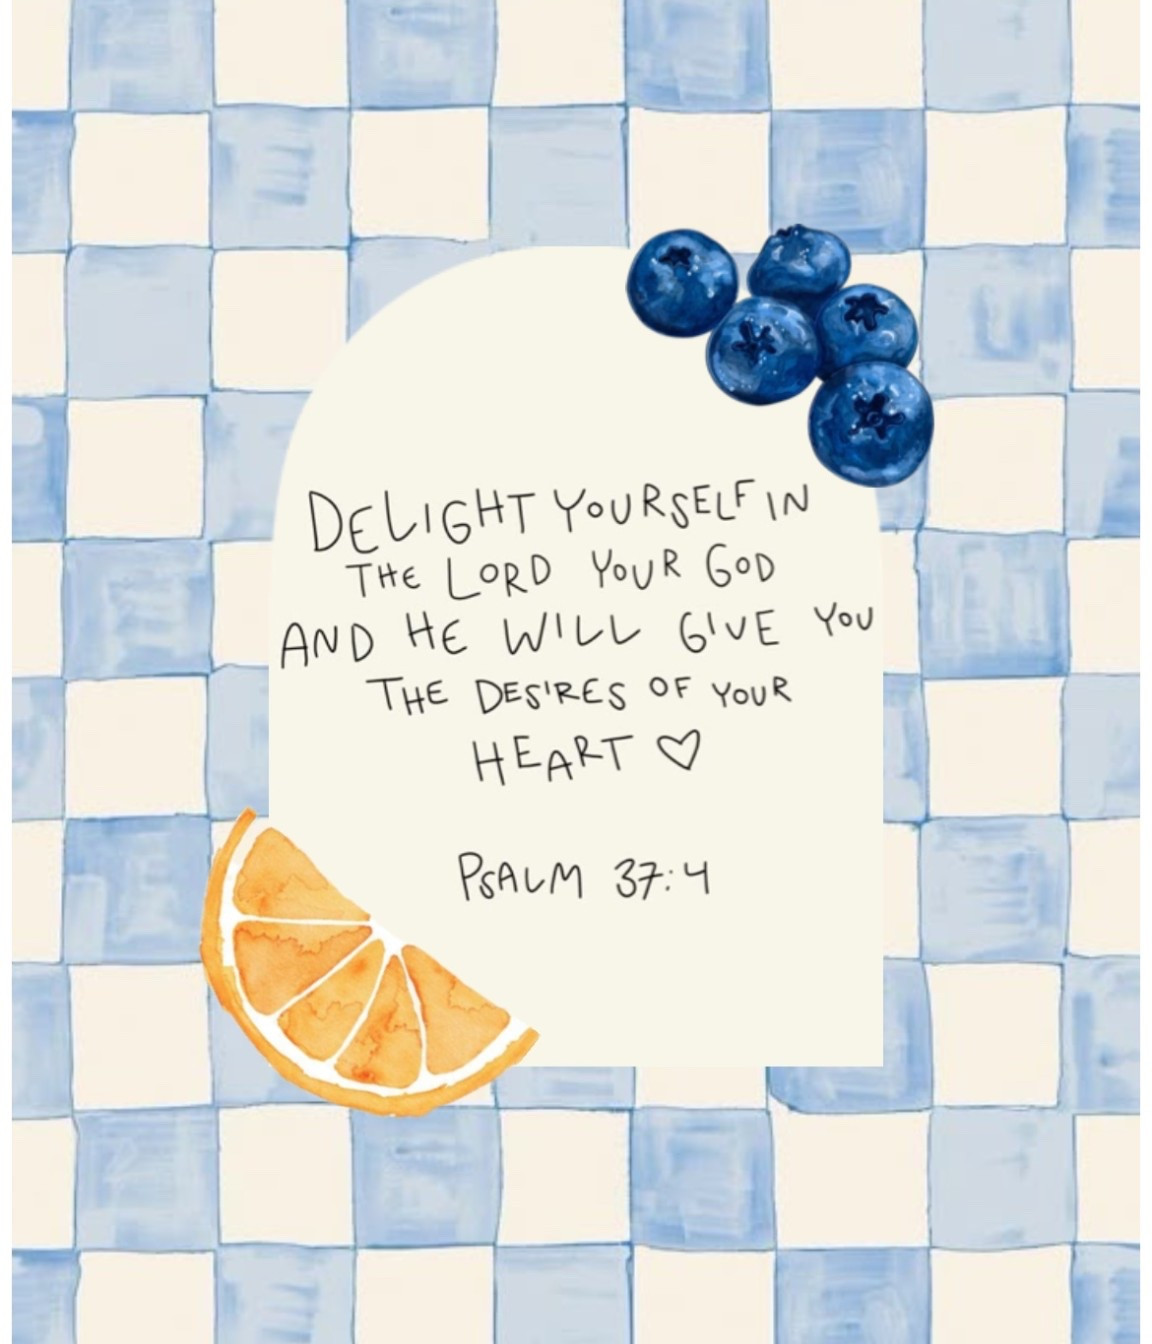 DELIGHT YOURSELF IN
THE LORD YOUR GOD
AND HE WILL GIVE YOU
THE DESIRES OF YOUR
HEART ♡
PSALM 37:4